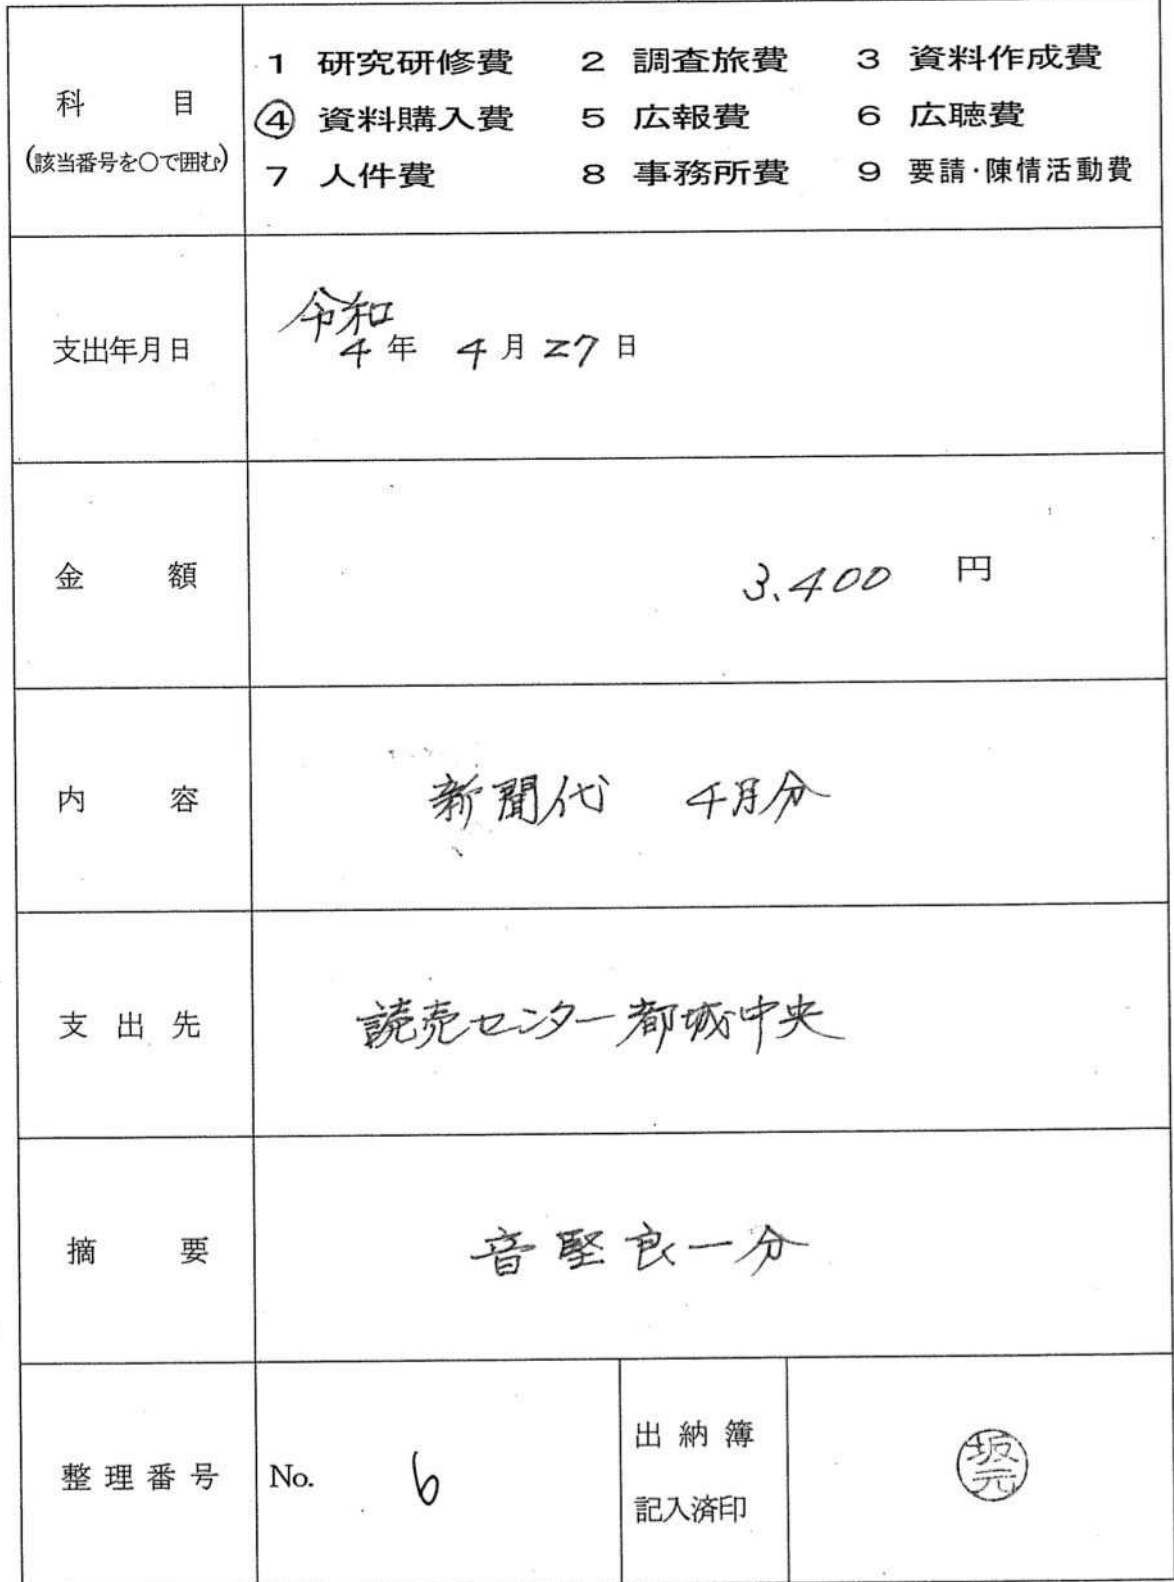 科 目
(該当番号を○で囲む)
1 研究研修費 2 調査旅費 3 資料作成費
④ 資料購入費 5 広報費 6 広聴費
7 人件費 8 事務所費 9 要請・陳情活動費
支出年月日
令和
4年 4月27日
金 額
3.400 円
内 容
新聞代 4月分
支出先
読売センター都城中央
摘 要
音堅良一分
整理番号
No. 6
出納簿
記入済印
坂元